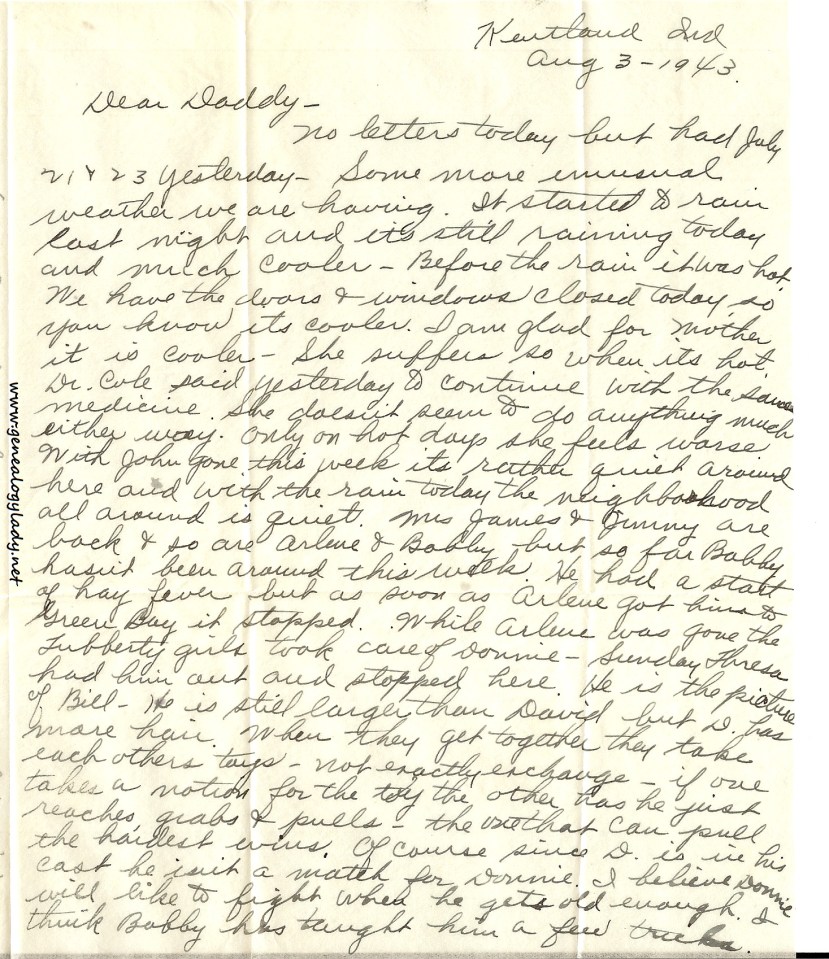 Kentland Ind
Aug 3-1943.
Dear Daddy-
No letters today but had July
21 & 23 yesterday- Some more unusual
weather we are having. It started to rain
last night and its still raining today
and much cooler - Before the rain it was hot.
We have the doors & windows closed today, so
you know its cooler. I am glad for Mother
it is cooler - She suffers so when its hot.
Dr. Cole said yesterday to continue with the same
medicine. She doesn't seem to do anything much
either way. Only on hot days she feels worse
With John gone this week its rather quiet around
here and with the rain today the neighborhood
all around is quiet. Mrs James & Jimmy are
back & so are Arlene & Bobby but so far Bobby
hasn't been around this week. He had a start
of hay fever but as soon as Arlene got him to
Green Bay it stopped. While Arlene was gone the
girls took care of Donnie - Sunday Thresa
had him out and stopped here. He is the picture
of Bill - He is still larger than David but D. has
more hair. When they get together they take
each others toys - not exactly exchange - if one
takes a notion for the toy the other has he just
reaches grabs & pulls - the one that can pull
the hardest wins. Of course since D. is in his
cast he isn't a match for Donnie. I believe Donnie
will like to fight when he gets old enough. I
think Bobby has taught him a few tricks.
www.genealogylady.net